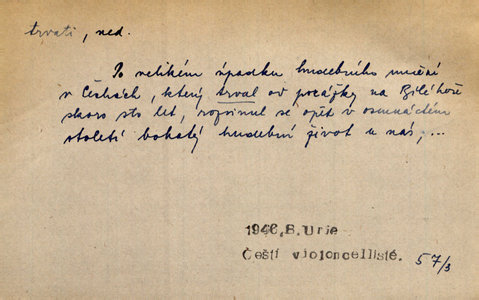 trvati, ned.
Po velikém úpadku hudebního umění
v Čechách, který trval od porážky na Bílé hoře
skoro sto let, rozvinul se opět v osmnáctém
století bohatý hudební život u nás,...
1946, B. Urie
Čeští violoncellisté. 57/3